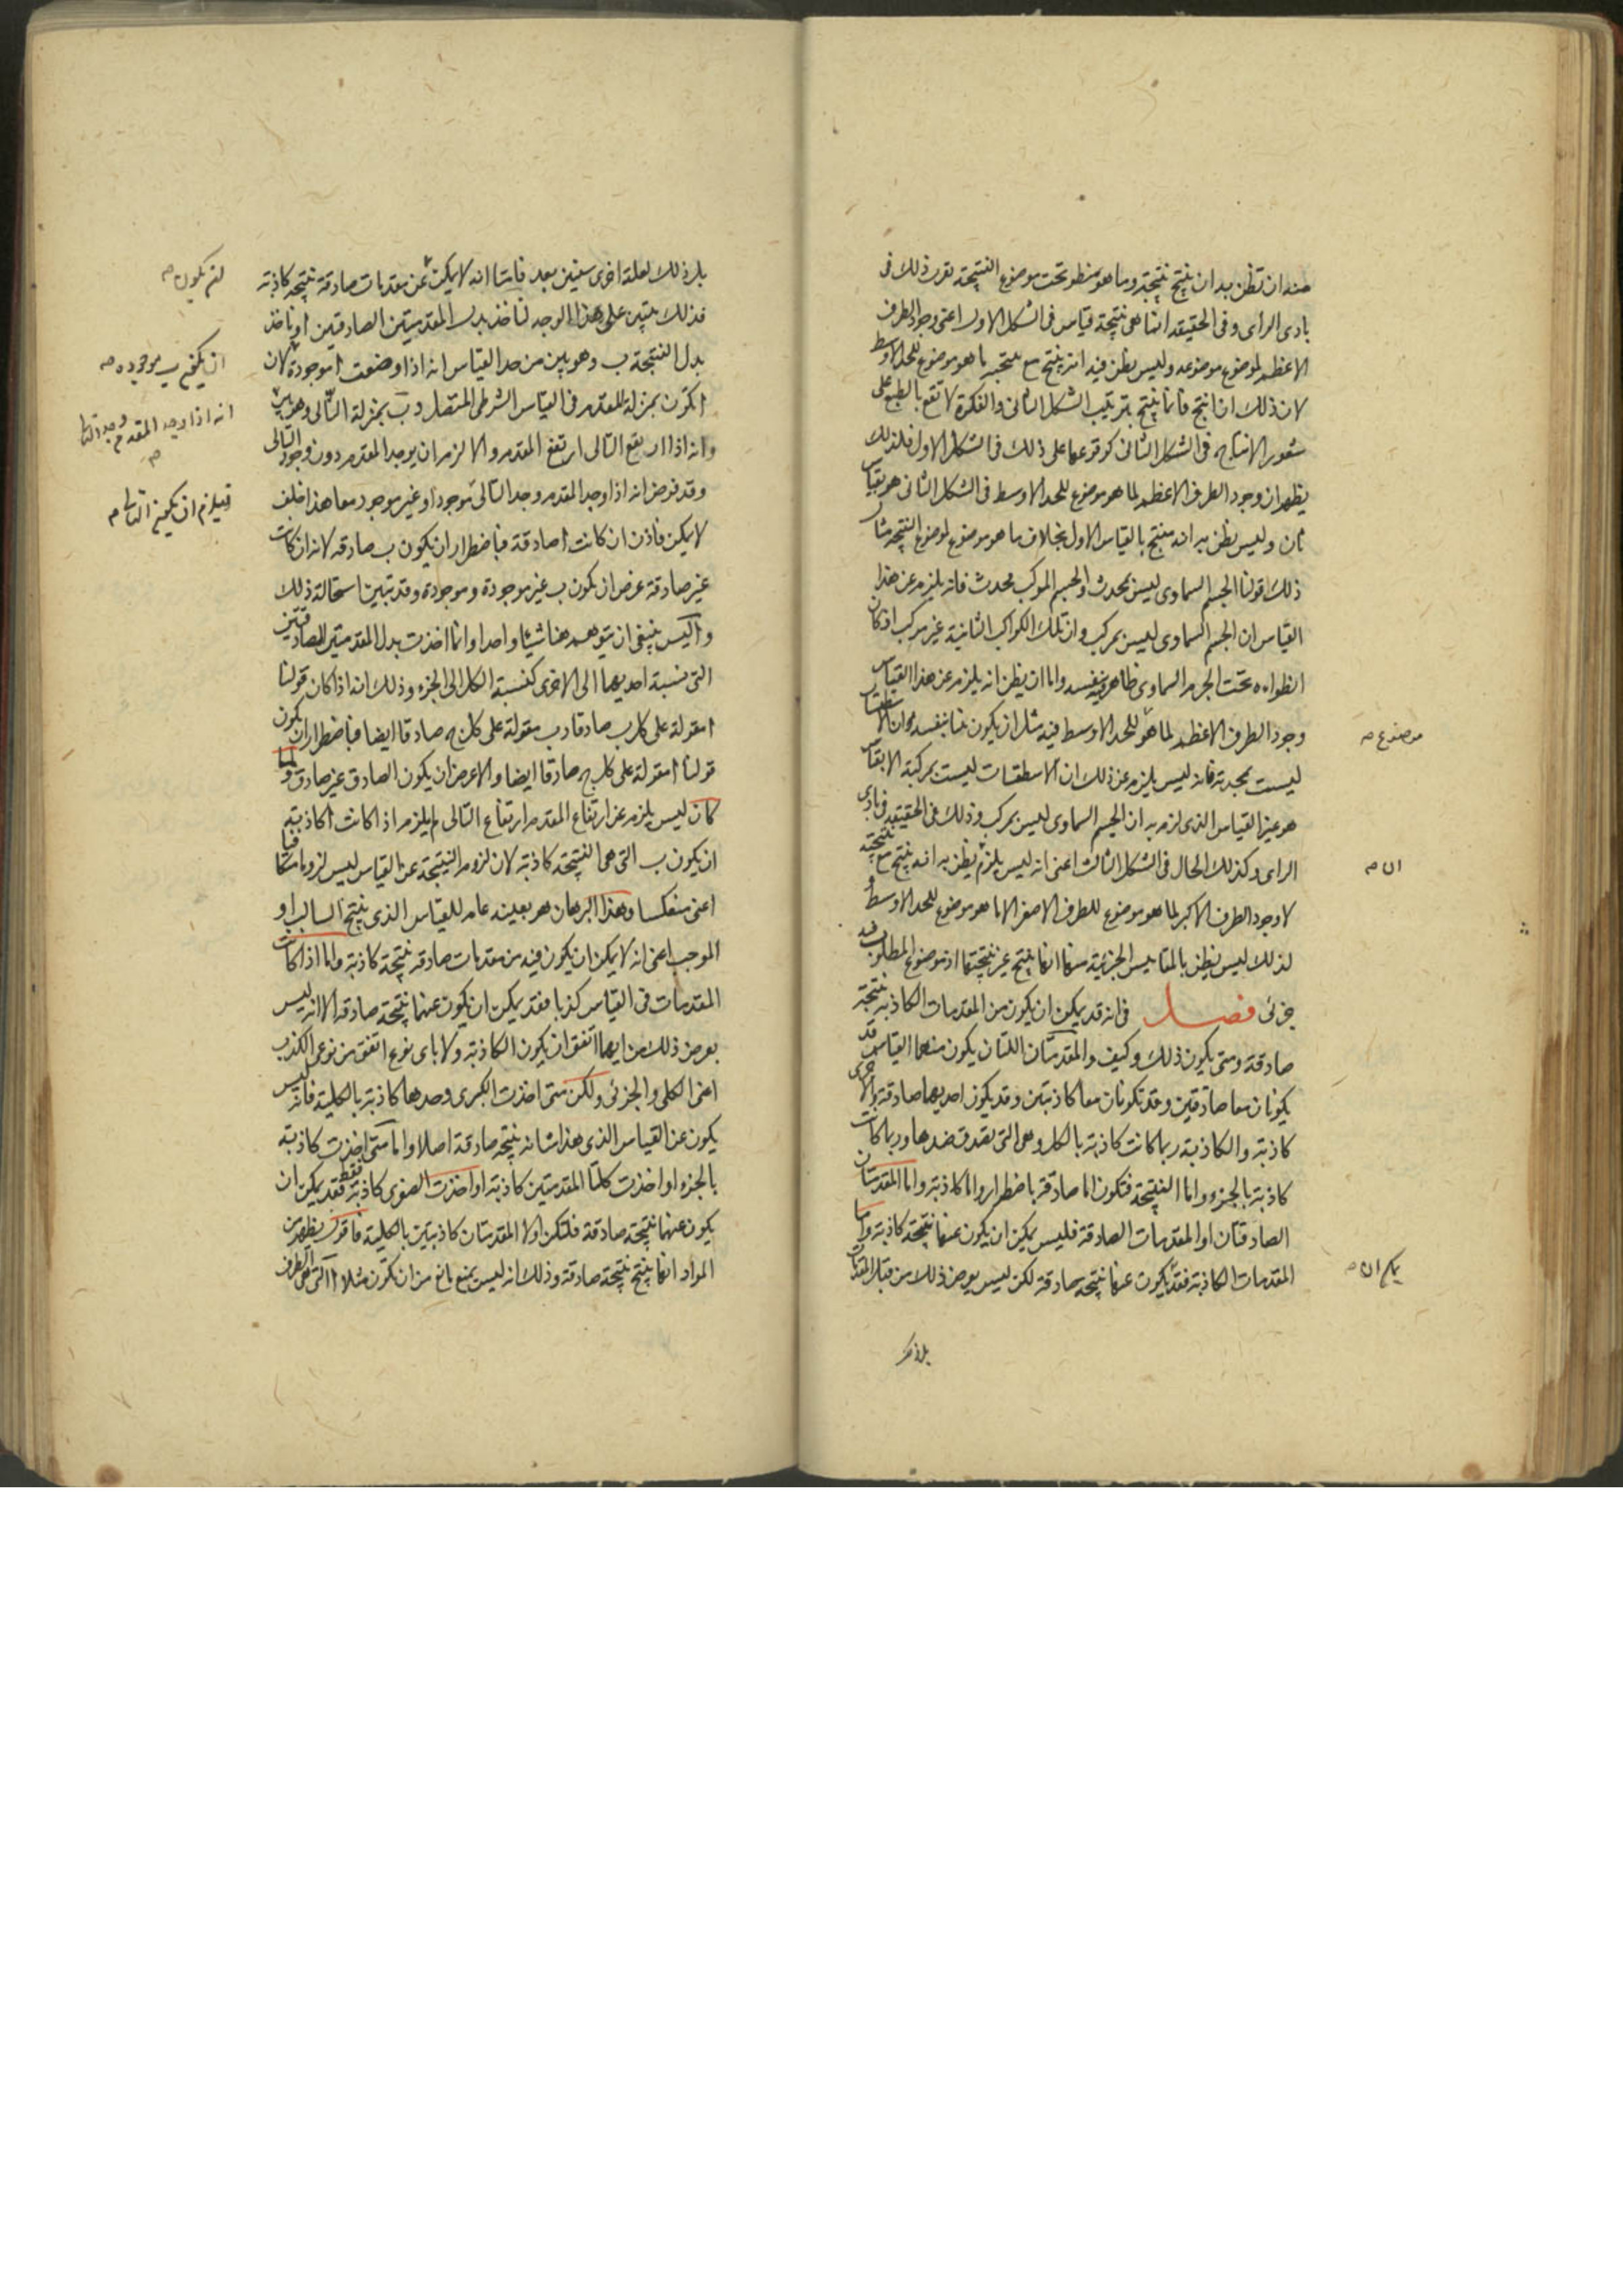 منه ان تظن به ان ينتج نتيجته وما هو منطو تحت موضوع النتيجة تقرر ذلك فى
بادى الراى وفى الحقيقه انما هى نتيجة قياس فى الشكل الاول اعنى وجود الطرف
الاعظم لموضوع موضوعه وليس يظن فيه انه ينتج مع نتيجته ما هو موضوع للحد الاوسط
لان ذلك ان انتج فانما ينتج بترتيب الشكل الثانى والفكرة لا تقع بالطبع على
شعور الانتاج فى الشكل الثانى كوقوعها على ذلك فى الشكل الاول فلذلك
يظهر ان وجود الطرف الاعظم لما هو موضوع للحد الاوسط فى الشكل الثانى هو بقياس
ثان وليس يظن به انه منتج بالقياس الاول بخلاف ما هو موضوع لموضوع النتيجة مثال
ذلك قولنا الجسم السماوى ليس بمحدث والجسم المركب محدث فانه يلزم عن هذا
القياس ان الجسم السماوى ليس بمركب وان تلك الكواكب الثانية غير مركب اذ كان
انطواءه تحت الجرم السماوى ظاهر بنفسه واما ان يظن انه يلزم عن هذا القياس
وجود الطرف الاعظم لما هو للحد الاوسط فيه مثل ان يكون بينا بنفسه ان الاسطقسات
موضوع صح
ليست بمحدثة فانه ليس يلزم عن ذلك ان الاسطقسات ليست بمركبة الا بقياس
هو غير القياس الذى لزم به ان الجسم السماوى ليس بمركب وذلك فى الحقيقه فى بادى
الراى وكذلك الحال فى الشكل الثالث اعنى انه ليس يلزم يظن به انه ينتج مع نتيجته
ان صح
لا وجود الطرف الاكبر لما هو موضوع للطرف الاصغر لا ما هو موضوع للحد الاوسط و
لذلك ليس يظن بالمقاييس الجزئية منها انها ينتج غير نتيجتها اذ موضوع المطلوب فيه
جزئى فصل فى انه قد يمكن ان يكون من المقدمات الكاذبه نتيجة
صادقة ومتى يكون ذلك وكيف والمقدمتان اللتان يكون منهما القياس قد
يكونان معا صادقين وقد تكونان معا كاذبتين وقد يكون احديهما صادقة والاخرى
كاذبة والكاذبة ربما كانت كاذبة بالكل وهى التى يصدق ضدها وربما كانت
كاذبة بالجزء واما النتيجة فتكون اما صادقة باضطرار واما كاذبة واما المقدمتان
الصادقتان او المقدمات الصادقة فليس يمكن ان يكون عنها نتيجة كاذبة واما
المقدمات الكاذبة فقد يكون عنها نتيجة صادقة لكن ليس يعرض ذلك من قبل المقدمات
يمكن ان صح
بل ذلك
بل ذلك لعلة اخرى سنبين بعد فاما انه لا يمكن عن مقدمات صادقة نتيجة كاذبة
ان يكون صح
فذلك يتبين على هذا الوجه لناخذ بدل المقدمتين الصادقتين ا وناخذ
بدل النتيجة ب وهو بين من حد القياس انه اذا وضعت ا موجودة لان
ان يكون ب موجوده صح
ا تكون بمنزلة المقدم فى القياس الشرطى المتصل و ب بمنزلة التالى وهو بين
انه اذا وجد المقدم وجد التالى صح
وانه اذا ارتفع التالى ارتفع المقدم والا لزم ان يوجد المقدم دون وجود التالى
وقد فرض انه اذا وجد المقدم وجد التالى موجودا وغير موجود معا هذا خلف
فيلزم ان يكون التالى صح
لا يمكن فاذن ان كانت ا صادقة فباضطرار ان يكون ب صادقه لانه ان كانت
غير صادقة عرض ان يكون ب غير موجودة وموجودة وقد تبين استحالة ذلك
وا ليس ينبغى ان يتوهم هنا شيئا واحدا وانما اخذت بدل المقدمتين الصادقتين
التى نسبة احديهما الى الاخرى كنسبة الكل الى الجزء وذلك انه اذا كان قولنا
ا مقولة على كل ب صادقا و ب مقولة على كل ج صادقا ايضا فباضطرار ان يكون
قولنا ا مقولة على كل ج صادقا ايضا والا عرض ان يكون الصادق غير صادق ولما
كان ليس يلزم عن ارتفاع المقدم ارتفاع التالى لم يلزم اذا كانت ا كاذبة
ان يكون ب التى هى النتيجة كاذبة لان لزوم النتيجة عن القياس ليس لزوما متكافيا
اعنى منعكسا وهذا البرهان هو بعينه عام للقياس الذى ينتج السالب او
الموجب اعنى انه لا يمكن ان يكون فيه من مقدمات صادقه نتيجة كاذبة واما اذا كانت
المقدمات فى القياس كذبا فقد يمكن ان يكون عنها نتيجة صادقه الا انه ليس
يعرض ذلك من ايهما اتفق ان يكون الكاذبة ولا باى نوع اتفق من نوعى الكذب
اعنى الكلى والجزئى ولكن متى اخذت الكبرى وحدها كاذبة بالكلية فانه ليس
يكون عن القياس الذى هذا شانه نتيجة صادقة اصلا واما متى اخذت كاذبة
بالجزء او اخذت كلتا المقدمتين كاذبة او اخذت الصغرى كاذبة فقط فقد يمكن ان
يكون عنها نتيجة صادقة فلتكن اولا المقدمتان كاذبتين بالكلية فاقول يظهر من
المواد انها ينتج نتيجة صادقة وذلك انه ليس يمنع مانع من ان تكون مثلا ا التى هى الطرف